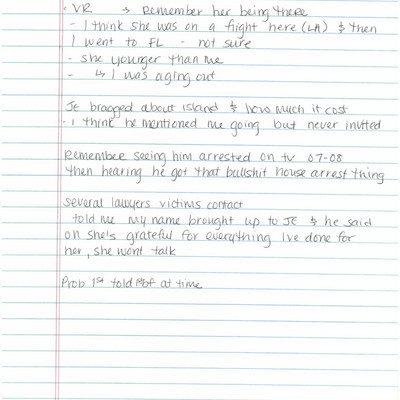 - VR → Remember her being there
- I think she was on a flight here (LA) & then
I went to FL - not sure
- she younger than me
- ↳ I was aging out
JE bragged about island & how much it cost
- I think he mentioned me going but never invited
Remember seeing him arrested on tv 07-08
then hearing he got that bullshit house arrest thing
several lawyers victims contact
told me my name brought up to JE & he said
oh she's grateful for everything Ive done for
her, she wont talk
Prob 1st told at time